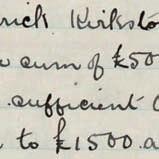 rick Kirksto
sum of £50
sufficient
to £1500. a